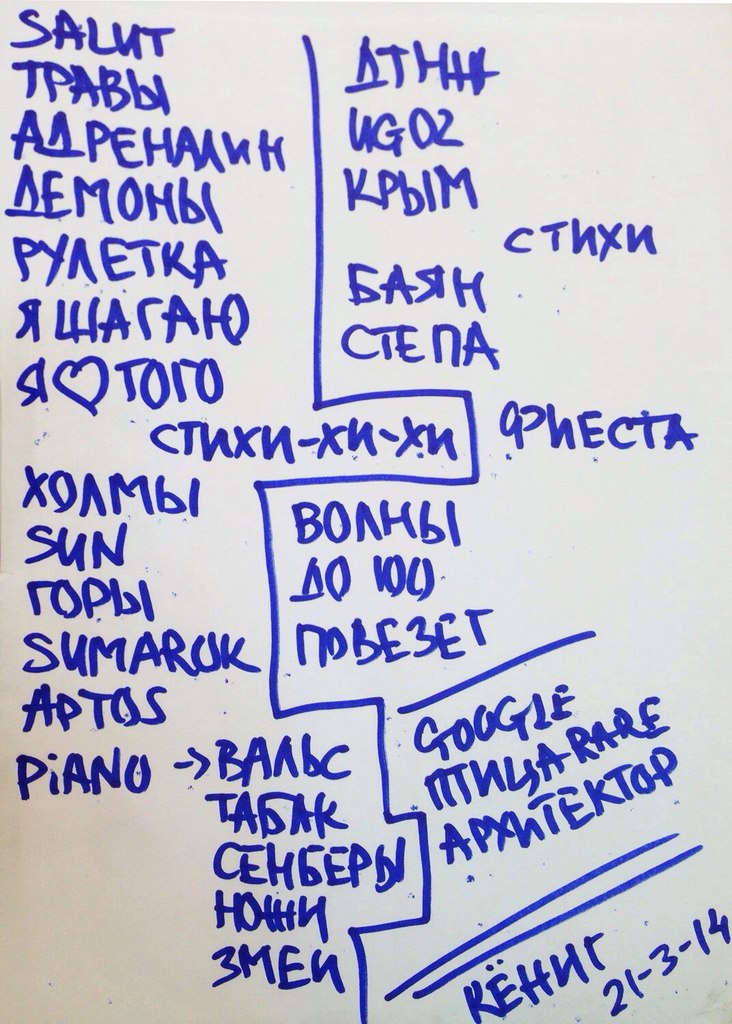 SALUT
ТРАВЫ
АДРЕНАЛИН
ДЕМОНЫ
РУЛЕТКА
Я ШАГАЮ
Я♡ТОГО
СТИХИ-ХИ-ХИ
ХОЛМЫ
SUN
ГОРЫ
SUMAROK
APTOS
PiANO → ВАЛЬС
ТАБАК
СЕНБЕРЫ
НОЖИ
ЗМЕИ
ДТНЖ
UGO2
КРЫМ
СТИХИ
БАЯН
СТЕПА
ФИЕСТА
ВОЛНЫ
ДО 100
ПОВЕЗЕТ
GOOGLE
ПТИЦА RARE
АРХИТЕКТОР
КЁНИГ
21-3-14